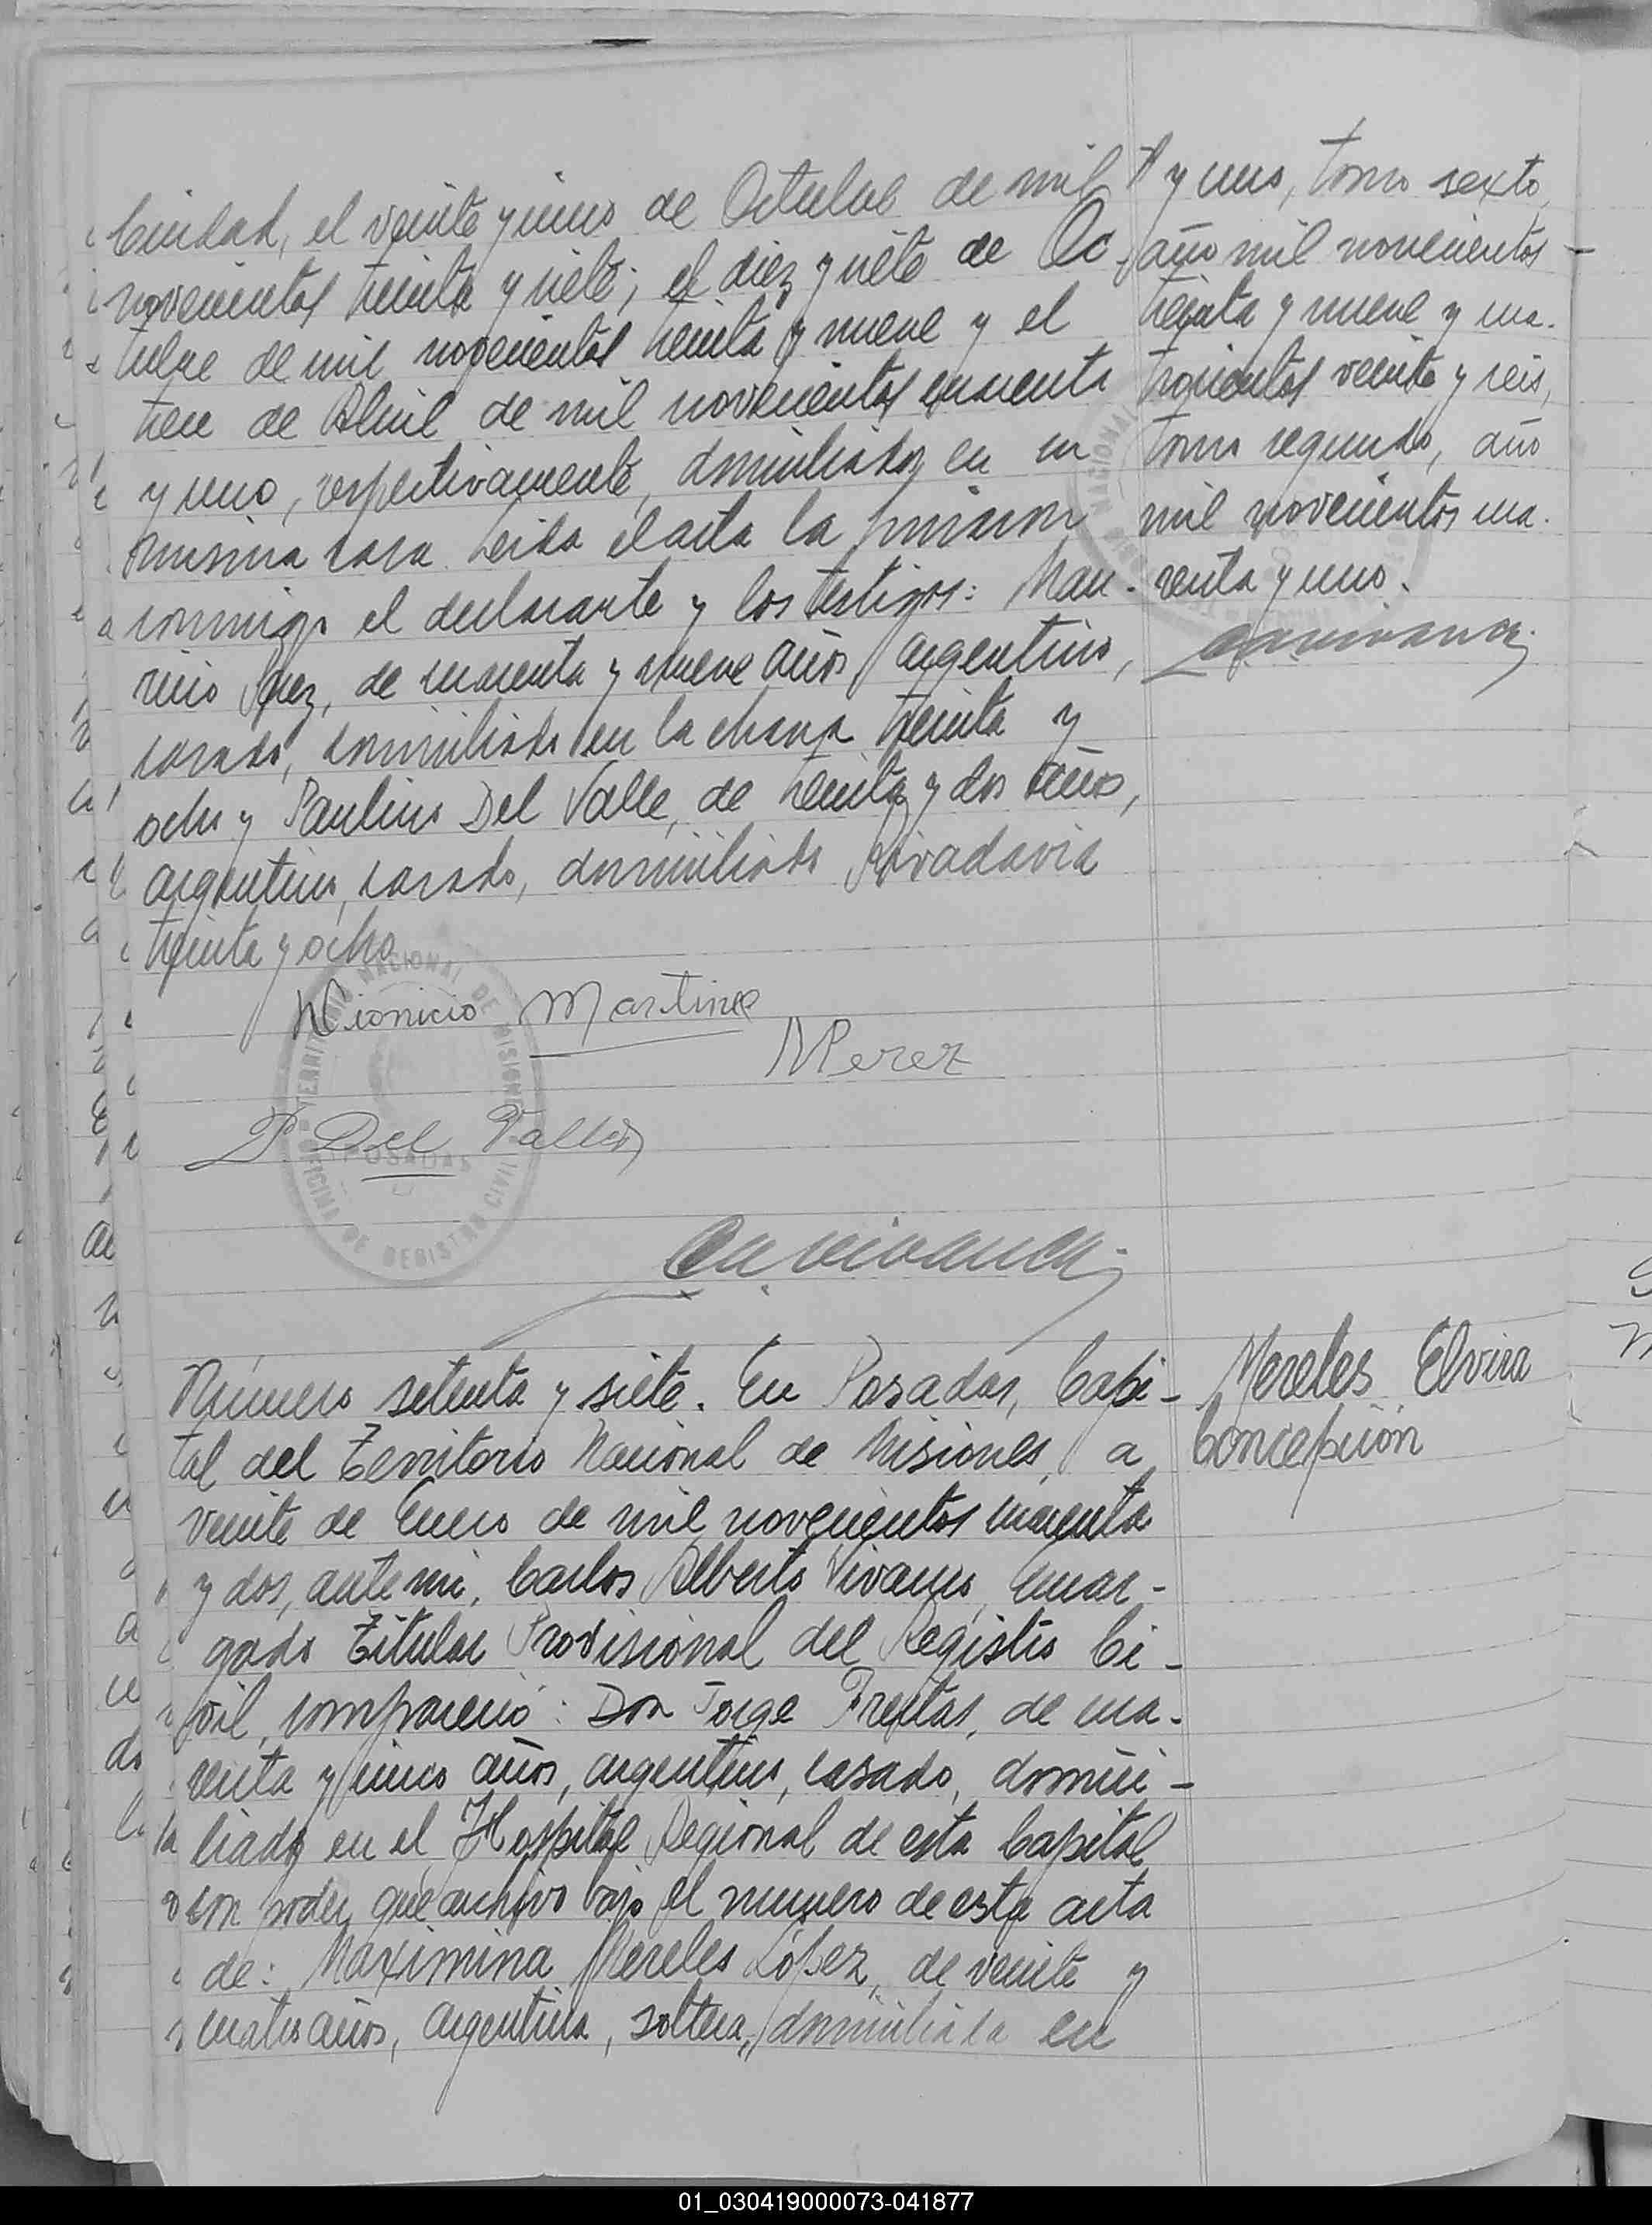 Ciudad, el veinte y cinco de Octubre de mil
novecientos treinta y siete; el diez y siete de Oc-
tubre de mil novecientos treinta y nueve y el
trece de Abril de mil novecientos cuarenta
y uno, respectivamente, domiciliados en su
misma casa. Leida el acta la firmaron
conmigo el declarante y los testigos: Mau-
ricio Perez, de cuarenta y nueve años, argentino,
casado, domiciliado en la chacra treinta y
ocho y Paulino Del Valle, de treinta y dos años,
argentino, casado, domiciliado Rivadavia
treinta y ocho
y uno, tomo sexto,
año mil novecientos
treinta y nueve y cua-
trocientos veinte y seis,
tomo segundo, año
mil novecientos cua-
renta y uno.
CAVivanco
Dionicio Martinez
MPerez
P. Del Valle
TERRITORIO NACIONAL DE MISIONES
POSADAS
OFICINA DE REGISTRO CIVIL
CAVivanco
Número setenta y siete. En Posadas, Capi-
tal del Territorio Nacional de Misiones, a
veinte de Enero de mil novecientos cuarenta
y dos, ante mi, Carlos Alberto Vivanco, Encar-
gado Titular Provisional del Registro Ci-
vil, compareció: Don Jorge Freitas, de cua-
renta y cinco años, argentino, casado, domici-
liado en el Hospital Regional de esta Capital
con poder que archivo bajo el numero de esta acta
de: Maximina Mereles López, de veinte y
cuatro años, argentina, soltera, domiciliada en
Mereles Elvira
Concepción
01_030419000073-041877